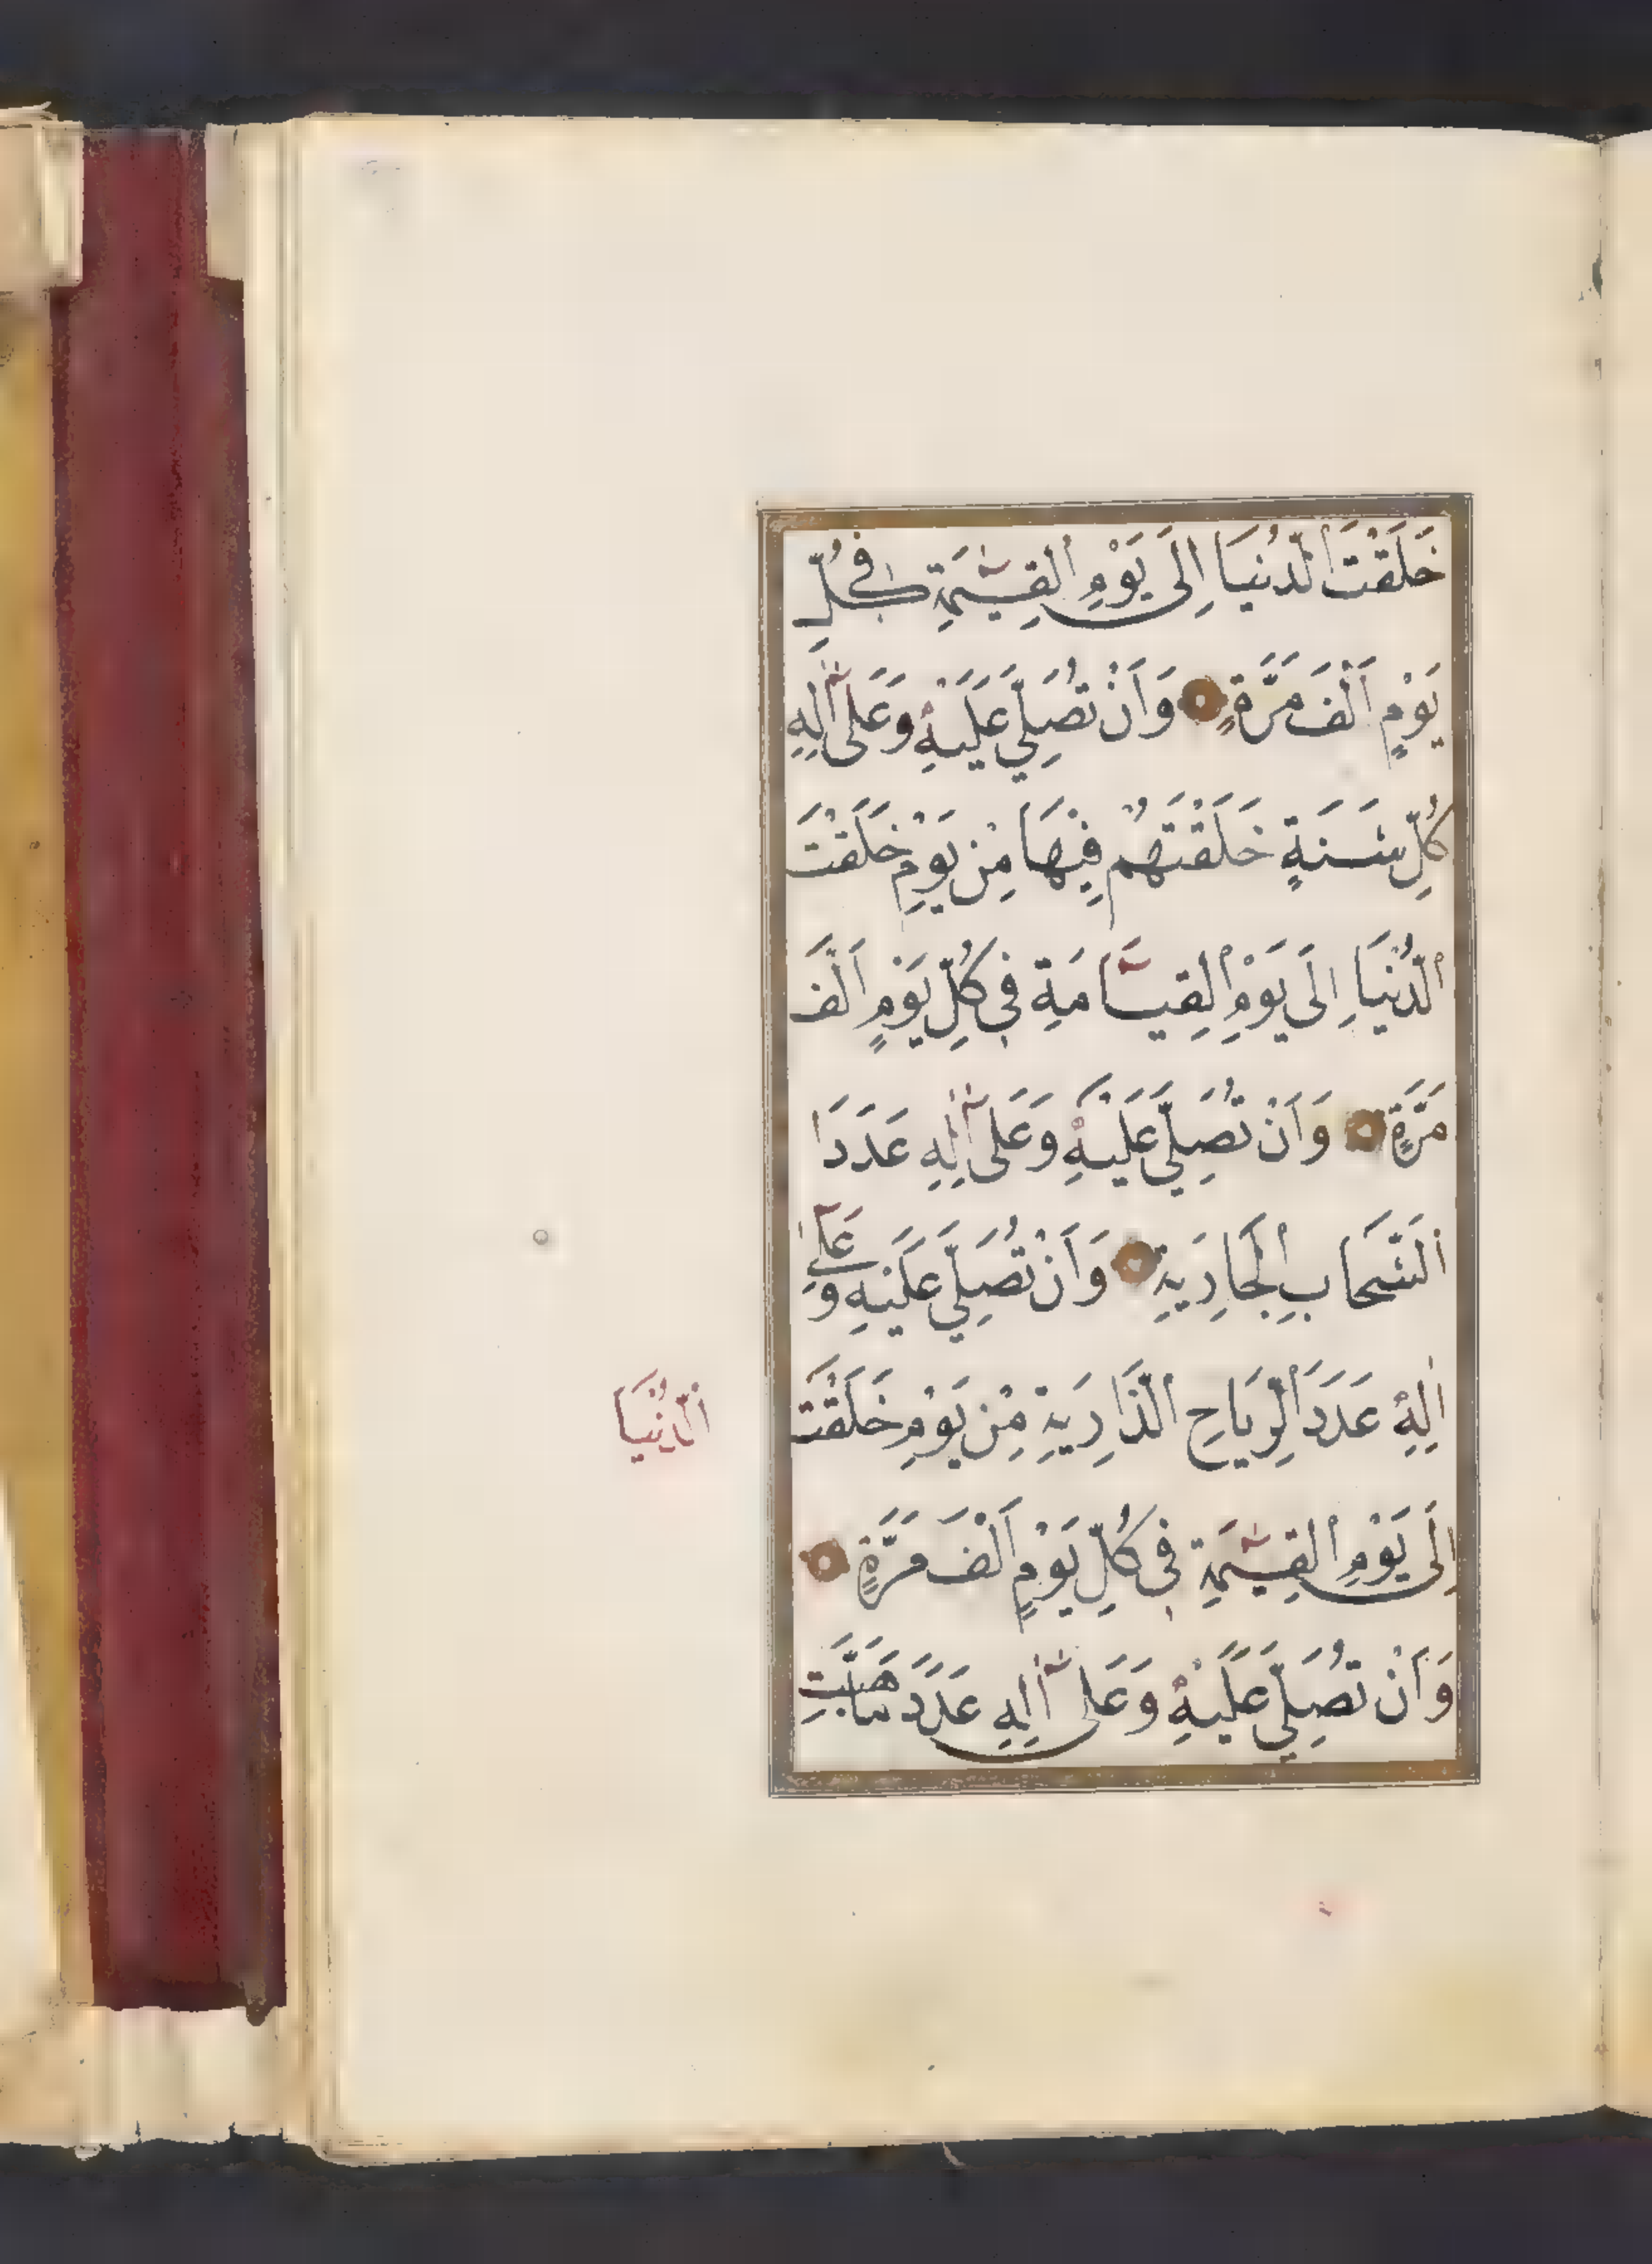 خَلَقْتَ الدُّنْيَا اِلَى يَوْمِ الْقِيٰمَةِ فِي كُلِّ
يَوْمٍ اَلْفَ مَرَّةٍ وَاَنْ تُصَلِّيَ عَلَيْهِ وَعَلَى اٰلِهِ
كُلِّ سَنَةٍ خَلَقْتَهُمْ فِيْهَا مِنْ يَوْمِ خَلَقْتَ
الدُّنْيَا اِلَى يَوْمِ الْقِيَامَةِ فِي كُلِّ يَوْمٍ اَلْفَ
مَرَّةٍ وَاَنْ تُصَلِّيَ عَلَيْهِ وَعَلَى اٰلِهِ عَدَدَ
السَّحَابِ الْجَارِيَةِ وَاَنْ تُصَلِّيَ عَلَيْهِ وَعَلَى
اٰلِهِ عَدَدَ الرِّيَاحِ الذَّارِيَةِ مِنْ يَوْمِ خَلَقْتَ
الدُّنْيَا
اِلَى يَوْمِ الْقِيٰمَةِ فِي كُلِّ يَوْمٍ اَلْفَ مَرَّةٍ
وَاَنْ تُصَلِّيَ عَلَيْهِ وَعَلَى اٰلِهِ عَدَدَ مَا هَبَّتِ